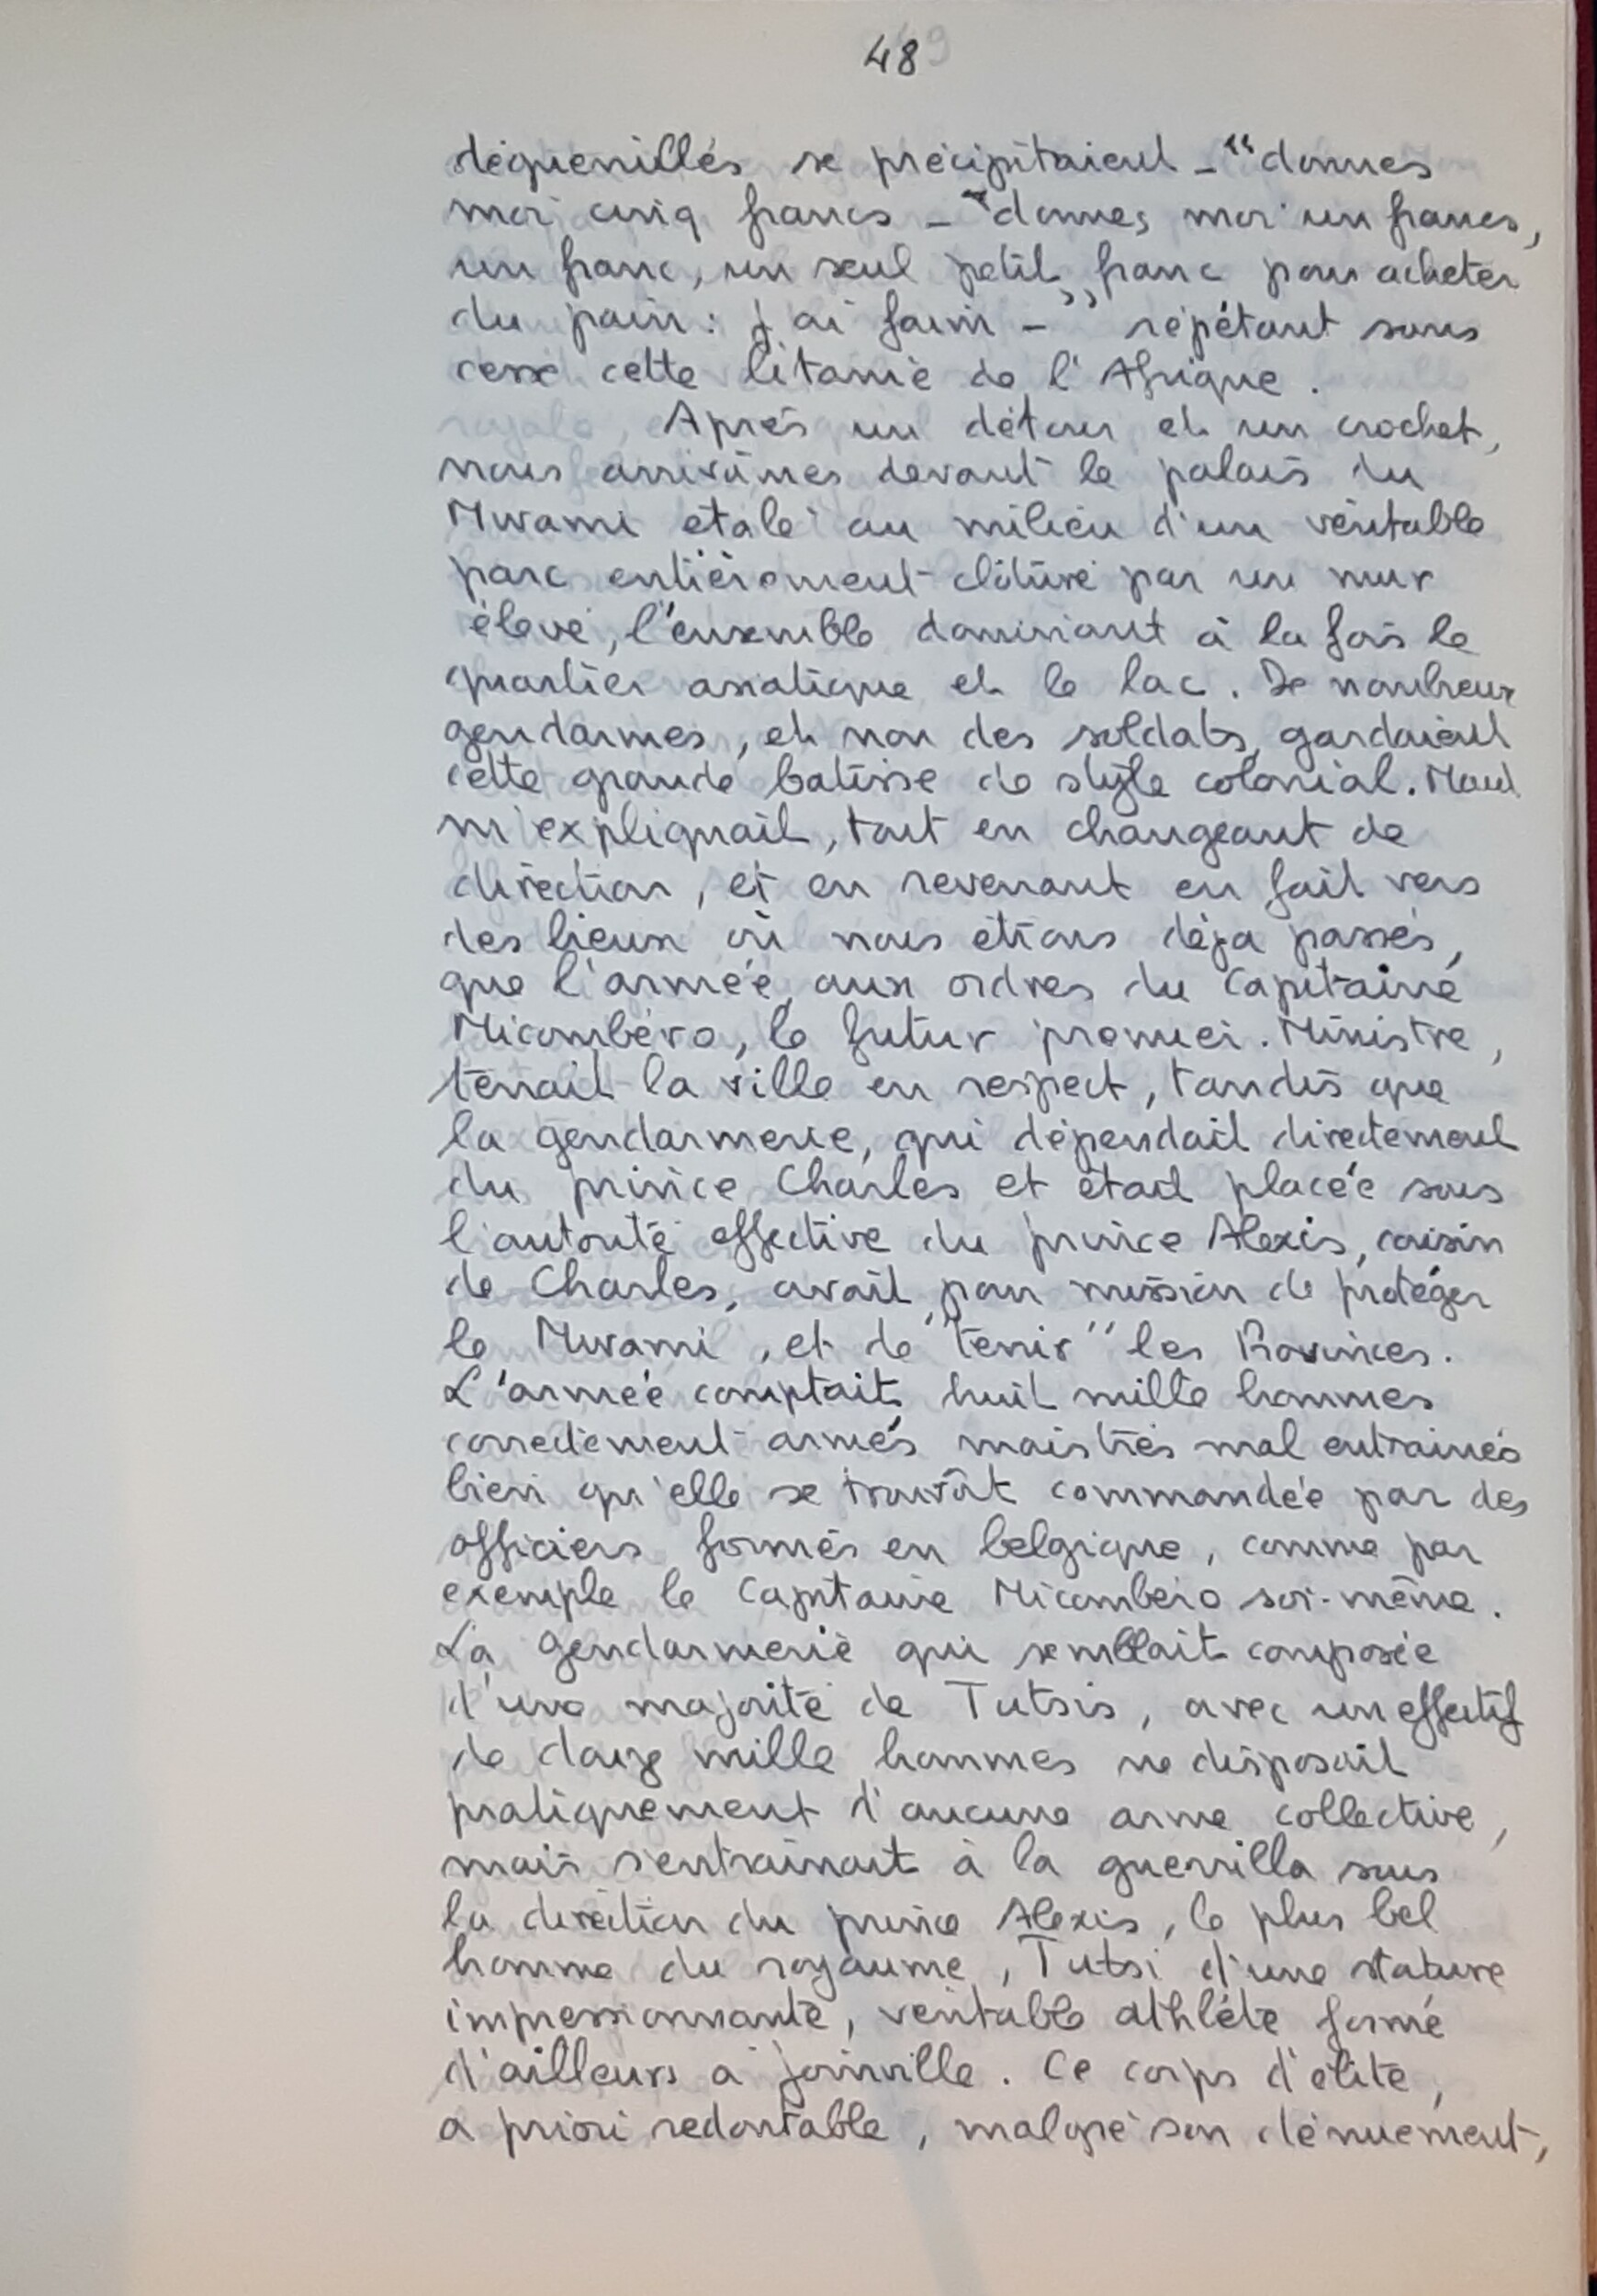 48
déguenillés se précipitaient - "donnes
moi cinq francs - "donnes moi un francs,
un franc, un seul petit franc pour acheter
du pain : j'ai faim - " répétant sans
cesse cette litanie de l'Afrique.
Après un détour et un crochet,
nous arrivâmes devant le palais du
Mwami étalé au milieu d'un véritable
parc entièrement clôturé par un mur
élevé, l'ensemble dominant à la fois le
quartier asiatique et le lac. De nombreux
gendarmes, et non des soldats, gardaient
cette grande batisse de style colonial. Maud
m'expliquait, tout en changeant de
direction, et en revenant en fait vers
des lieux où nous étions déja passés,
que l'armée, aux ordres du Capitaine
Micombéro, le futur premier. Ministre,
tenait la ville en respect, tandis que
la gendarmerie, qui dépendait directement
du prince Charles et était placée sous
l'autorité effective du prince Alexis, cousin
de Charles, avait pour mission de protéger
le Mwami, et de "tenir" les Provinces.
L'armée comptait huit mille hommes
correctement armés mais très mal entrainés
bien qu'elle se trouvât commandée par des
officiers formés en belgique, comme par
exemple le Capitaine Micombéro soi-même.
La Gendarmerie qui semblait composée
d'une majorité de Tutsis, avec un effectif
de douze mille hommes ne disposait
pratiquement d'aucune arme collective,
mais s'entrainait à la guerrilla sous
la direction du prince Alexis, le plus bel
homme du royaume, Tutsi d'une stature
impressionnante, véritable athlète formé
d'ailleurs à Joinville. Ce corps d'élite,
a priori redoutable, malgré son dénuement,